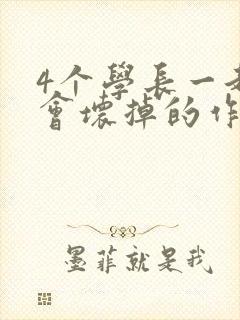 4个學長一
會壞掉的作
墨菲就是我